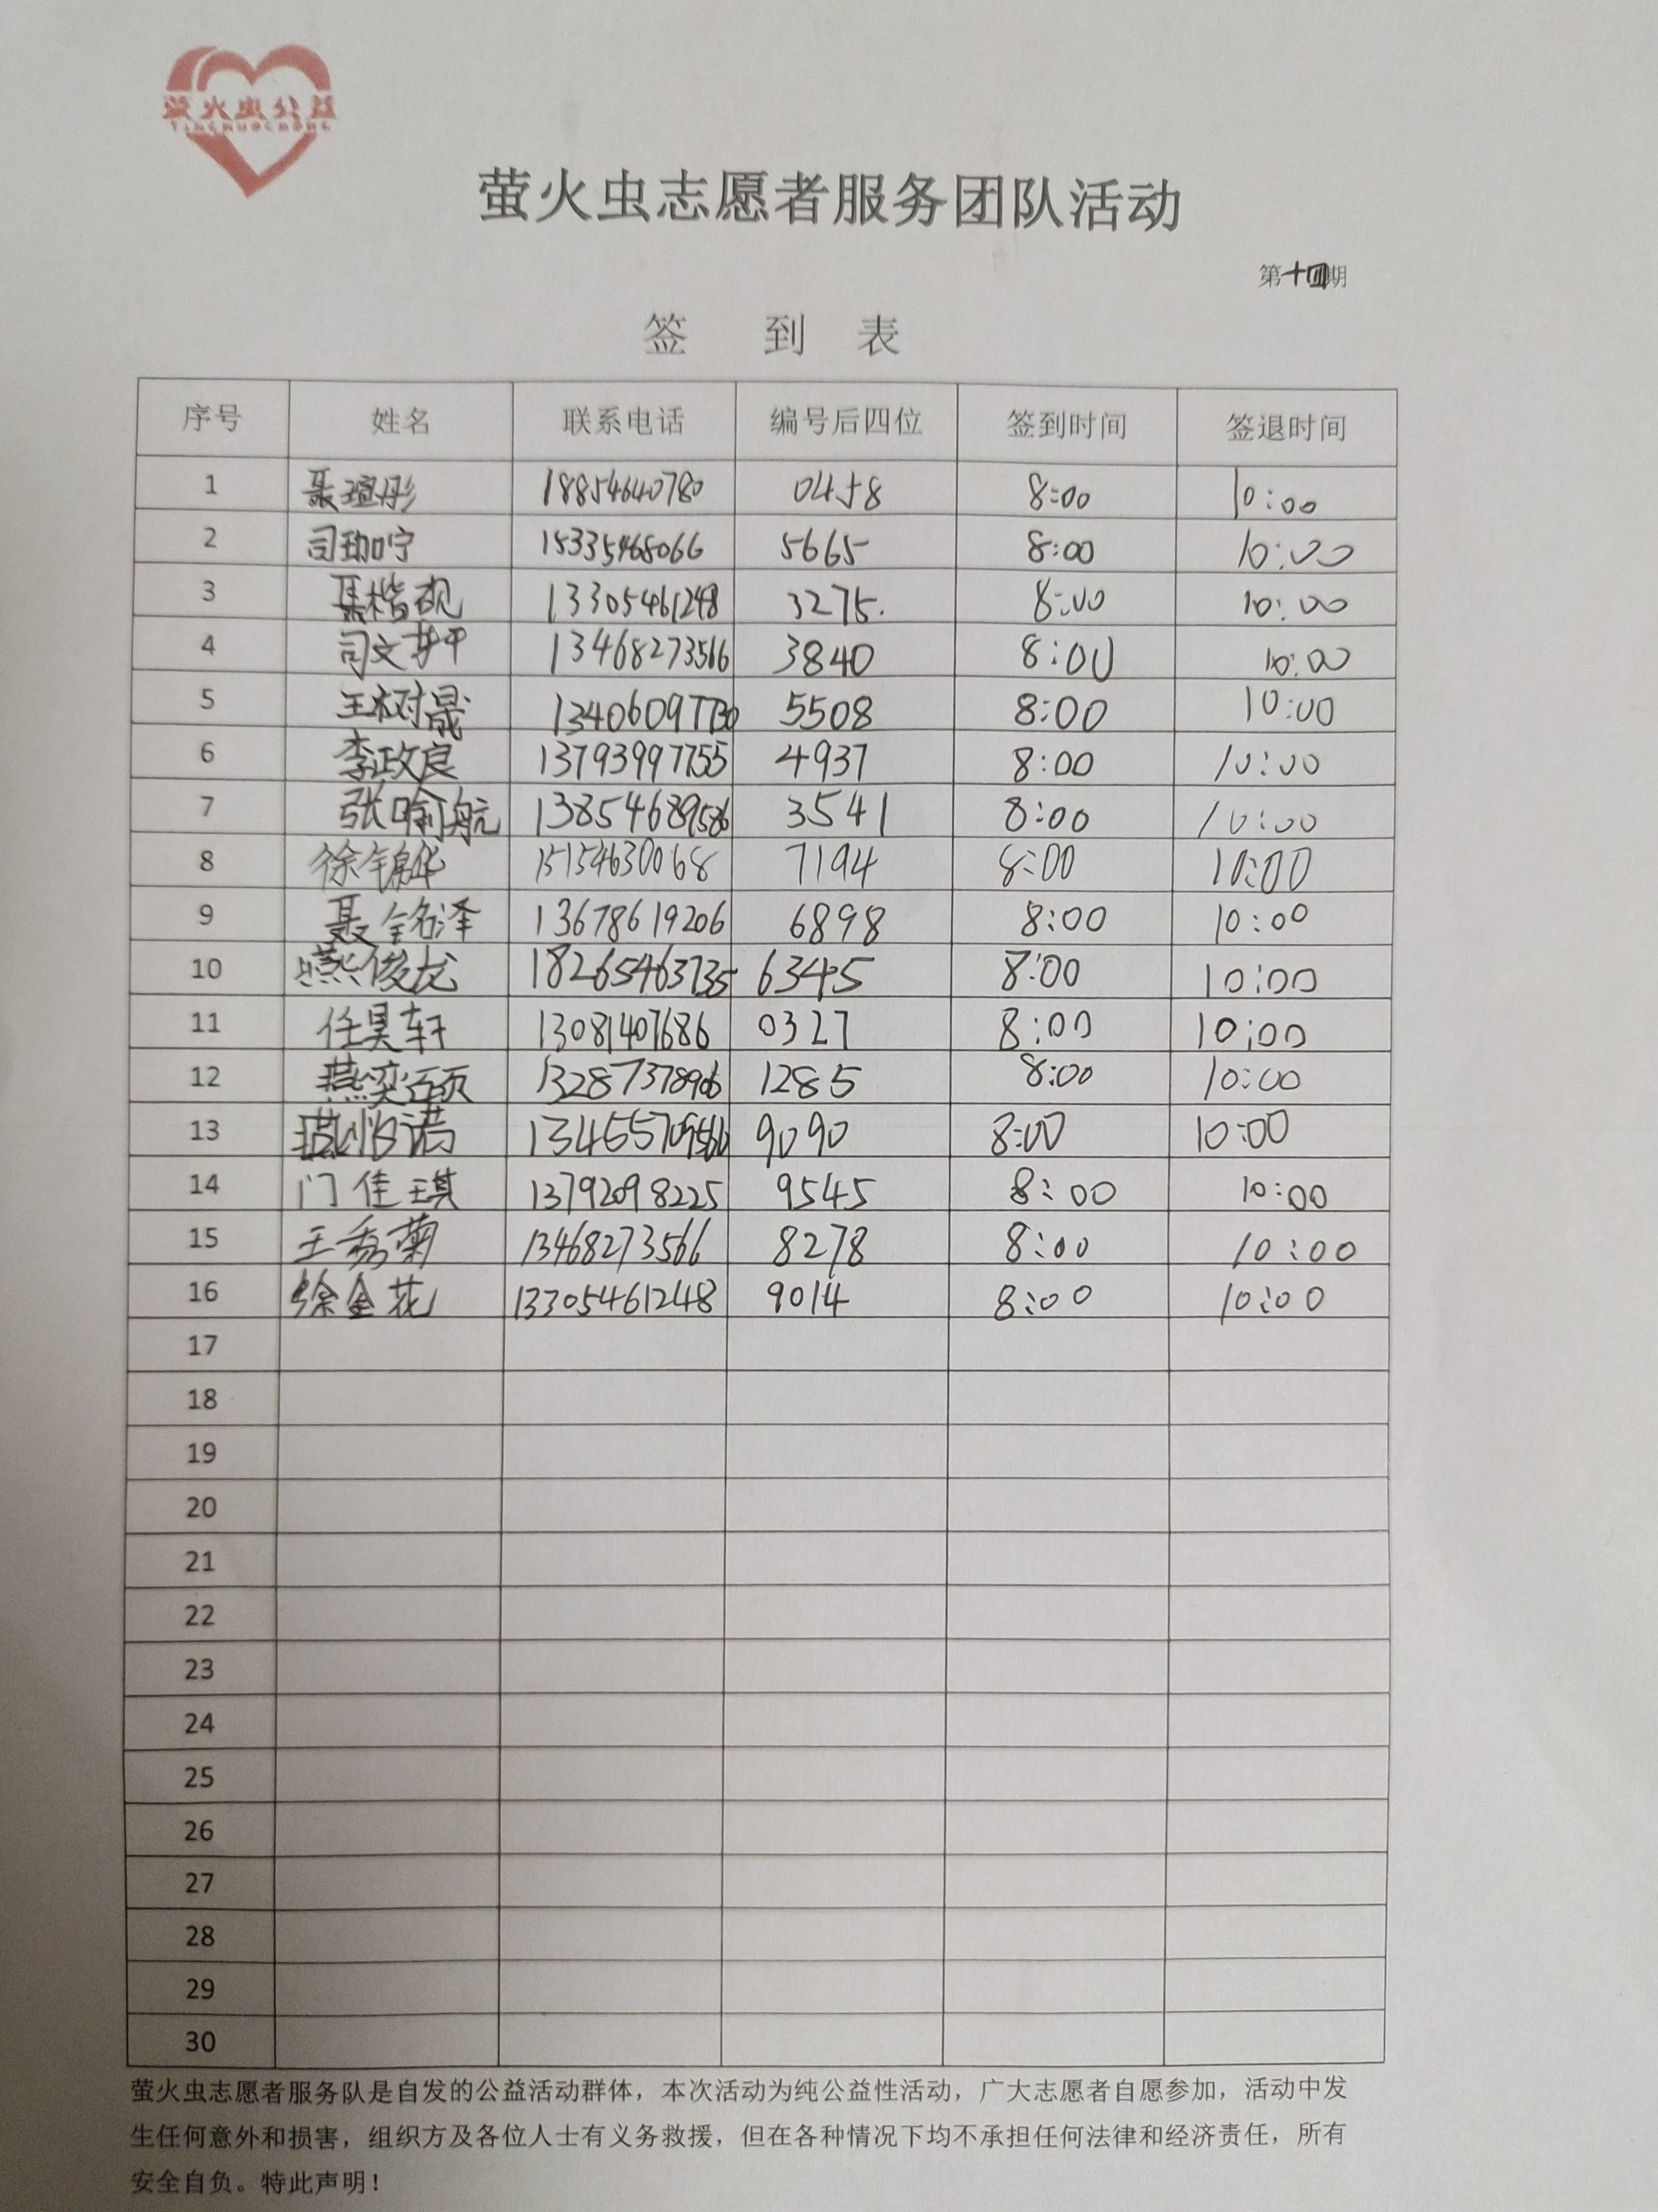 萤火虫公益
YINGHUOCHONG
萤火虫志愿者服务团队活动
第十四期
签 到 表
序号 姓名 联系电话 编号后四位 签到时间 签退时间
1 聂瑄彤 18854640780 0458 8:00 10:00
2 司珈宁 15335468066 5665 8:00 10:00
3 聂楷砚 13305461248 3275. 8:00 10:00
4 司文 13468273566 3840 8:00 10:00
5 王树晟 13406097730 5508 8:00 10:00
6 李政良 13793997755 4937 8:00 10:00
7 张喻航 13854689586 3541 8:00 10:00
8 徐锦华 15154630068 7194 8:00 10:00
9 聂铭泽 13678619206 6898 8:00 10:00
10 燕俊龙 18265463735 6345 8:00 10:00
11 任昊轩 13081407686 0327 8:00 10:00
12 燕奕 13287378906 1285 8:00 10:00
13 诺 9090 8:00 10:00
14 门佳琪 13792098225 9545 8:00 10:00
15 王秀菊 13468273566 8278 8:00 10:00
16 徐金花 13305461248 9014 8:00 10:00
17
18
19
20
21
22
23
24
25
26
27
28
29
30
萤火虫志愿者服务队是自发的公益活动群体，本次活动为纯公益性活动，广大志愿者自愿参加，活动中发
生任何意外和损害，组织方及各位人士有义务救援，但在各种情况下均不承担任何法律和经济责任，所有
安全自负。特此声明！